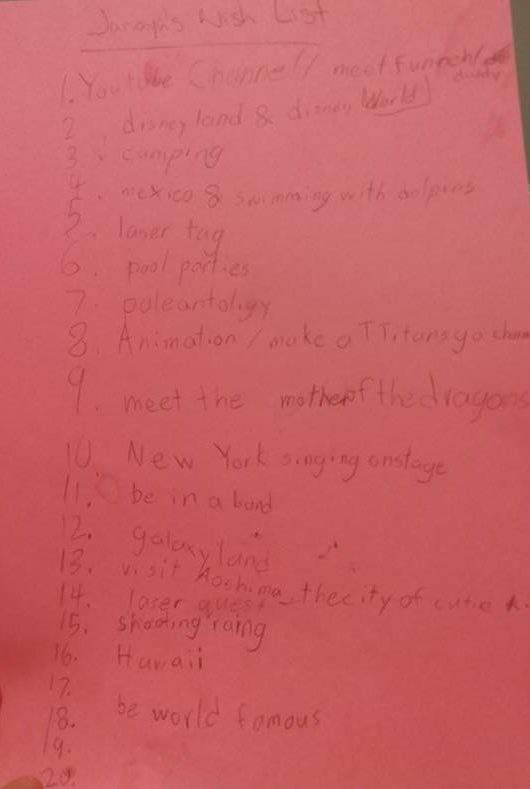 Wish List
1. Youtube Channel / meet Funnel
2. disneyland & disney World
3. camping
4. mexico & swimming with dolpins
5. laser tag
6. pool parties
7. paleantology
8. Animation / make a TTitansgo
9. meet the mother of the dragons
10. New York singing onstage
11. be in a band
12. galaxyland
13. visit Aoshima, the city of cutie
14. laser quest
15. shooting raing
16. Hawaii
17.
18. be world famous
19.
20.